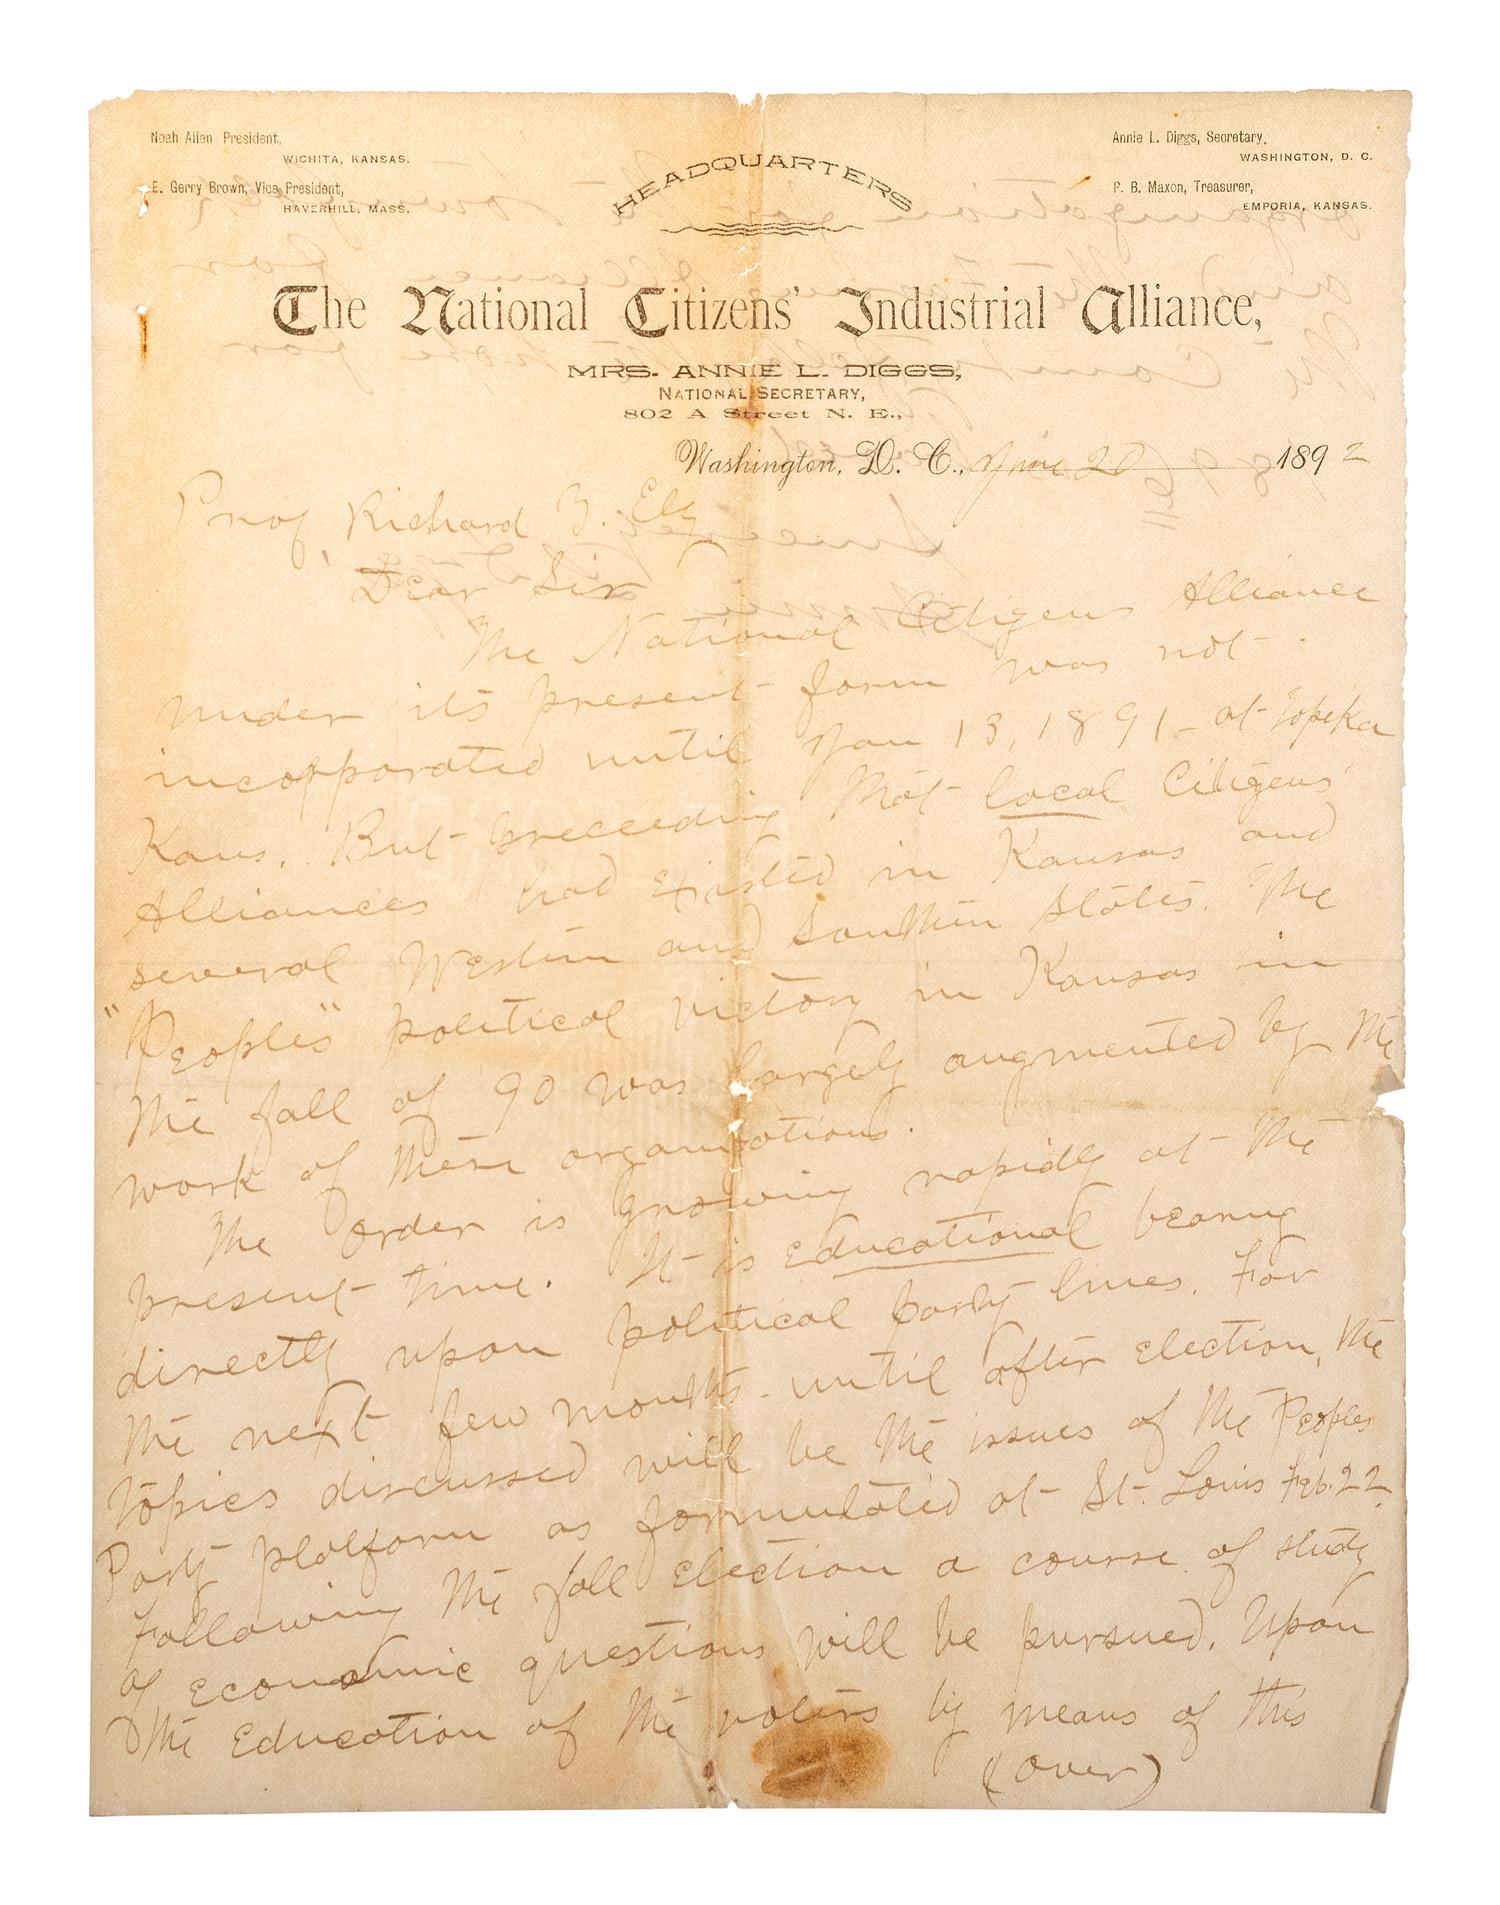 Noah Allen President,
WICHITA, KANSAS.
E. Gerry Brown, Vice President,
HAVERHILL, MASS.
HEADQUARTERS
Annie L. Diggs, Secretary,
WASHINGTON, D. C.
P. B. Maxon, Treasurer,
EMPORIA, KANSAS.
The National Citizens' Industrial Alliance,
MRS. ANNIE L. DIGGS,
NATIONAL SECRETARY,
802 A Street N. E.,
Washington, D. C., June 20 1892
Prof. Richard T. Ely
Dear Sir
The National Citizens Alliance
under its present form was not
incorporated until Jan 13, 1891 - at Topeka
Kans. But preceeding that local Citizens'
Alliances had existed in Kansas and
several Western and Southern states. The
"Peoples" political victory in Kansas in
the fall of 90 was largely augmented by the
work of these organizations.
The order is growing rapidly at the
present time. It is educational bearing
directly upon political party lines. For
the next few months - until after election, the
topics discussed will be the issues of the Peoples
Party platform as formulated at St. Louis Feb. 22.
following the fall election a course of study
of economic questions will be pursued. Upon
the education of the voters by means of this
(over)